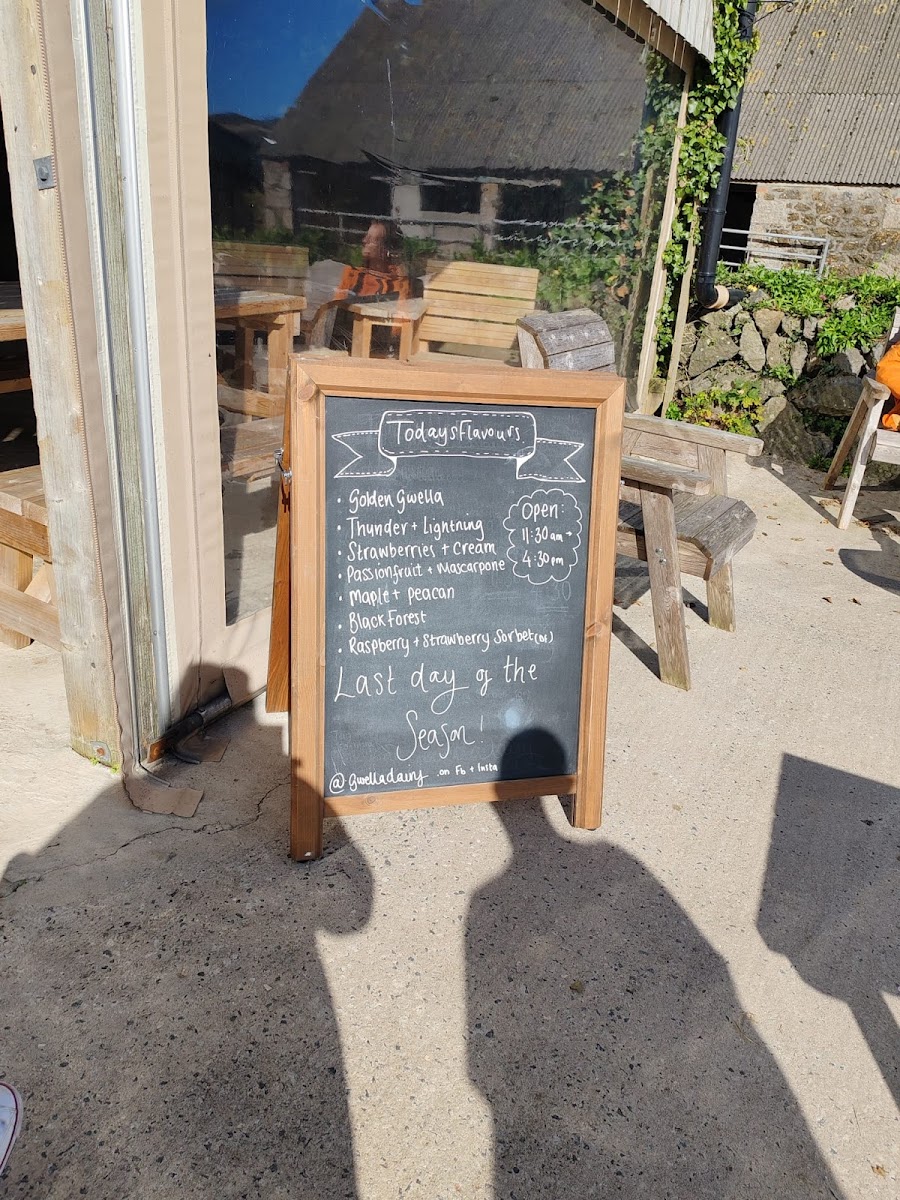 Todays Flavours
• Golden Gwella
• Thunder + Lightning
• Strawberries + Cream
• Passionfruit + Mascarpone
• Maple + Peacan
• Black Forest
• Raspberry + Strawberry Sorbet (DF)
Open:
11:30 am →
4:30 pm
Last day of the
Season!
@gwelladairy .on Fb + Insta